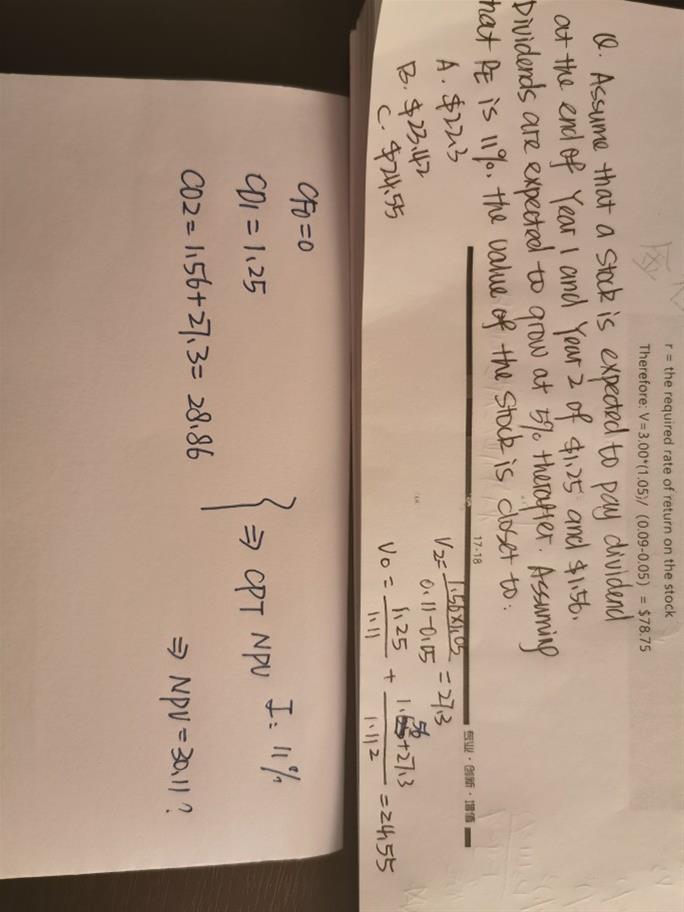 r = the required rate of return on the stock
Therefore: V=3.00*(1.05)/ (0.09-0.05) = $78.75
Q. Assume that a stock is expected to pay dividend
at the end of Year 1 and Year 2 of $1.25 and $1.56.
Dividends are expected to grow at 5% therafter. Assuming
that RE is 11%. the value of the stock is closet to:
A. $22.3
B. $23.42
C. $24.55
17-18
专业·创新·增值
V2= 1.56×1.05
0.11-0.05 = 27.3
V0 = 1.25 + 1.56+27.3 = 24.55
1.11 1.11²
CF0=0
C01 = 1.25
C02 = 1.56+27.3= 28.86
} ⇒ CPT NPV I: 11%
⇒ NPV = 30.11?